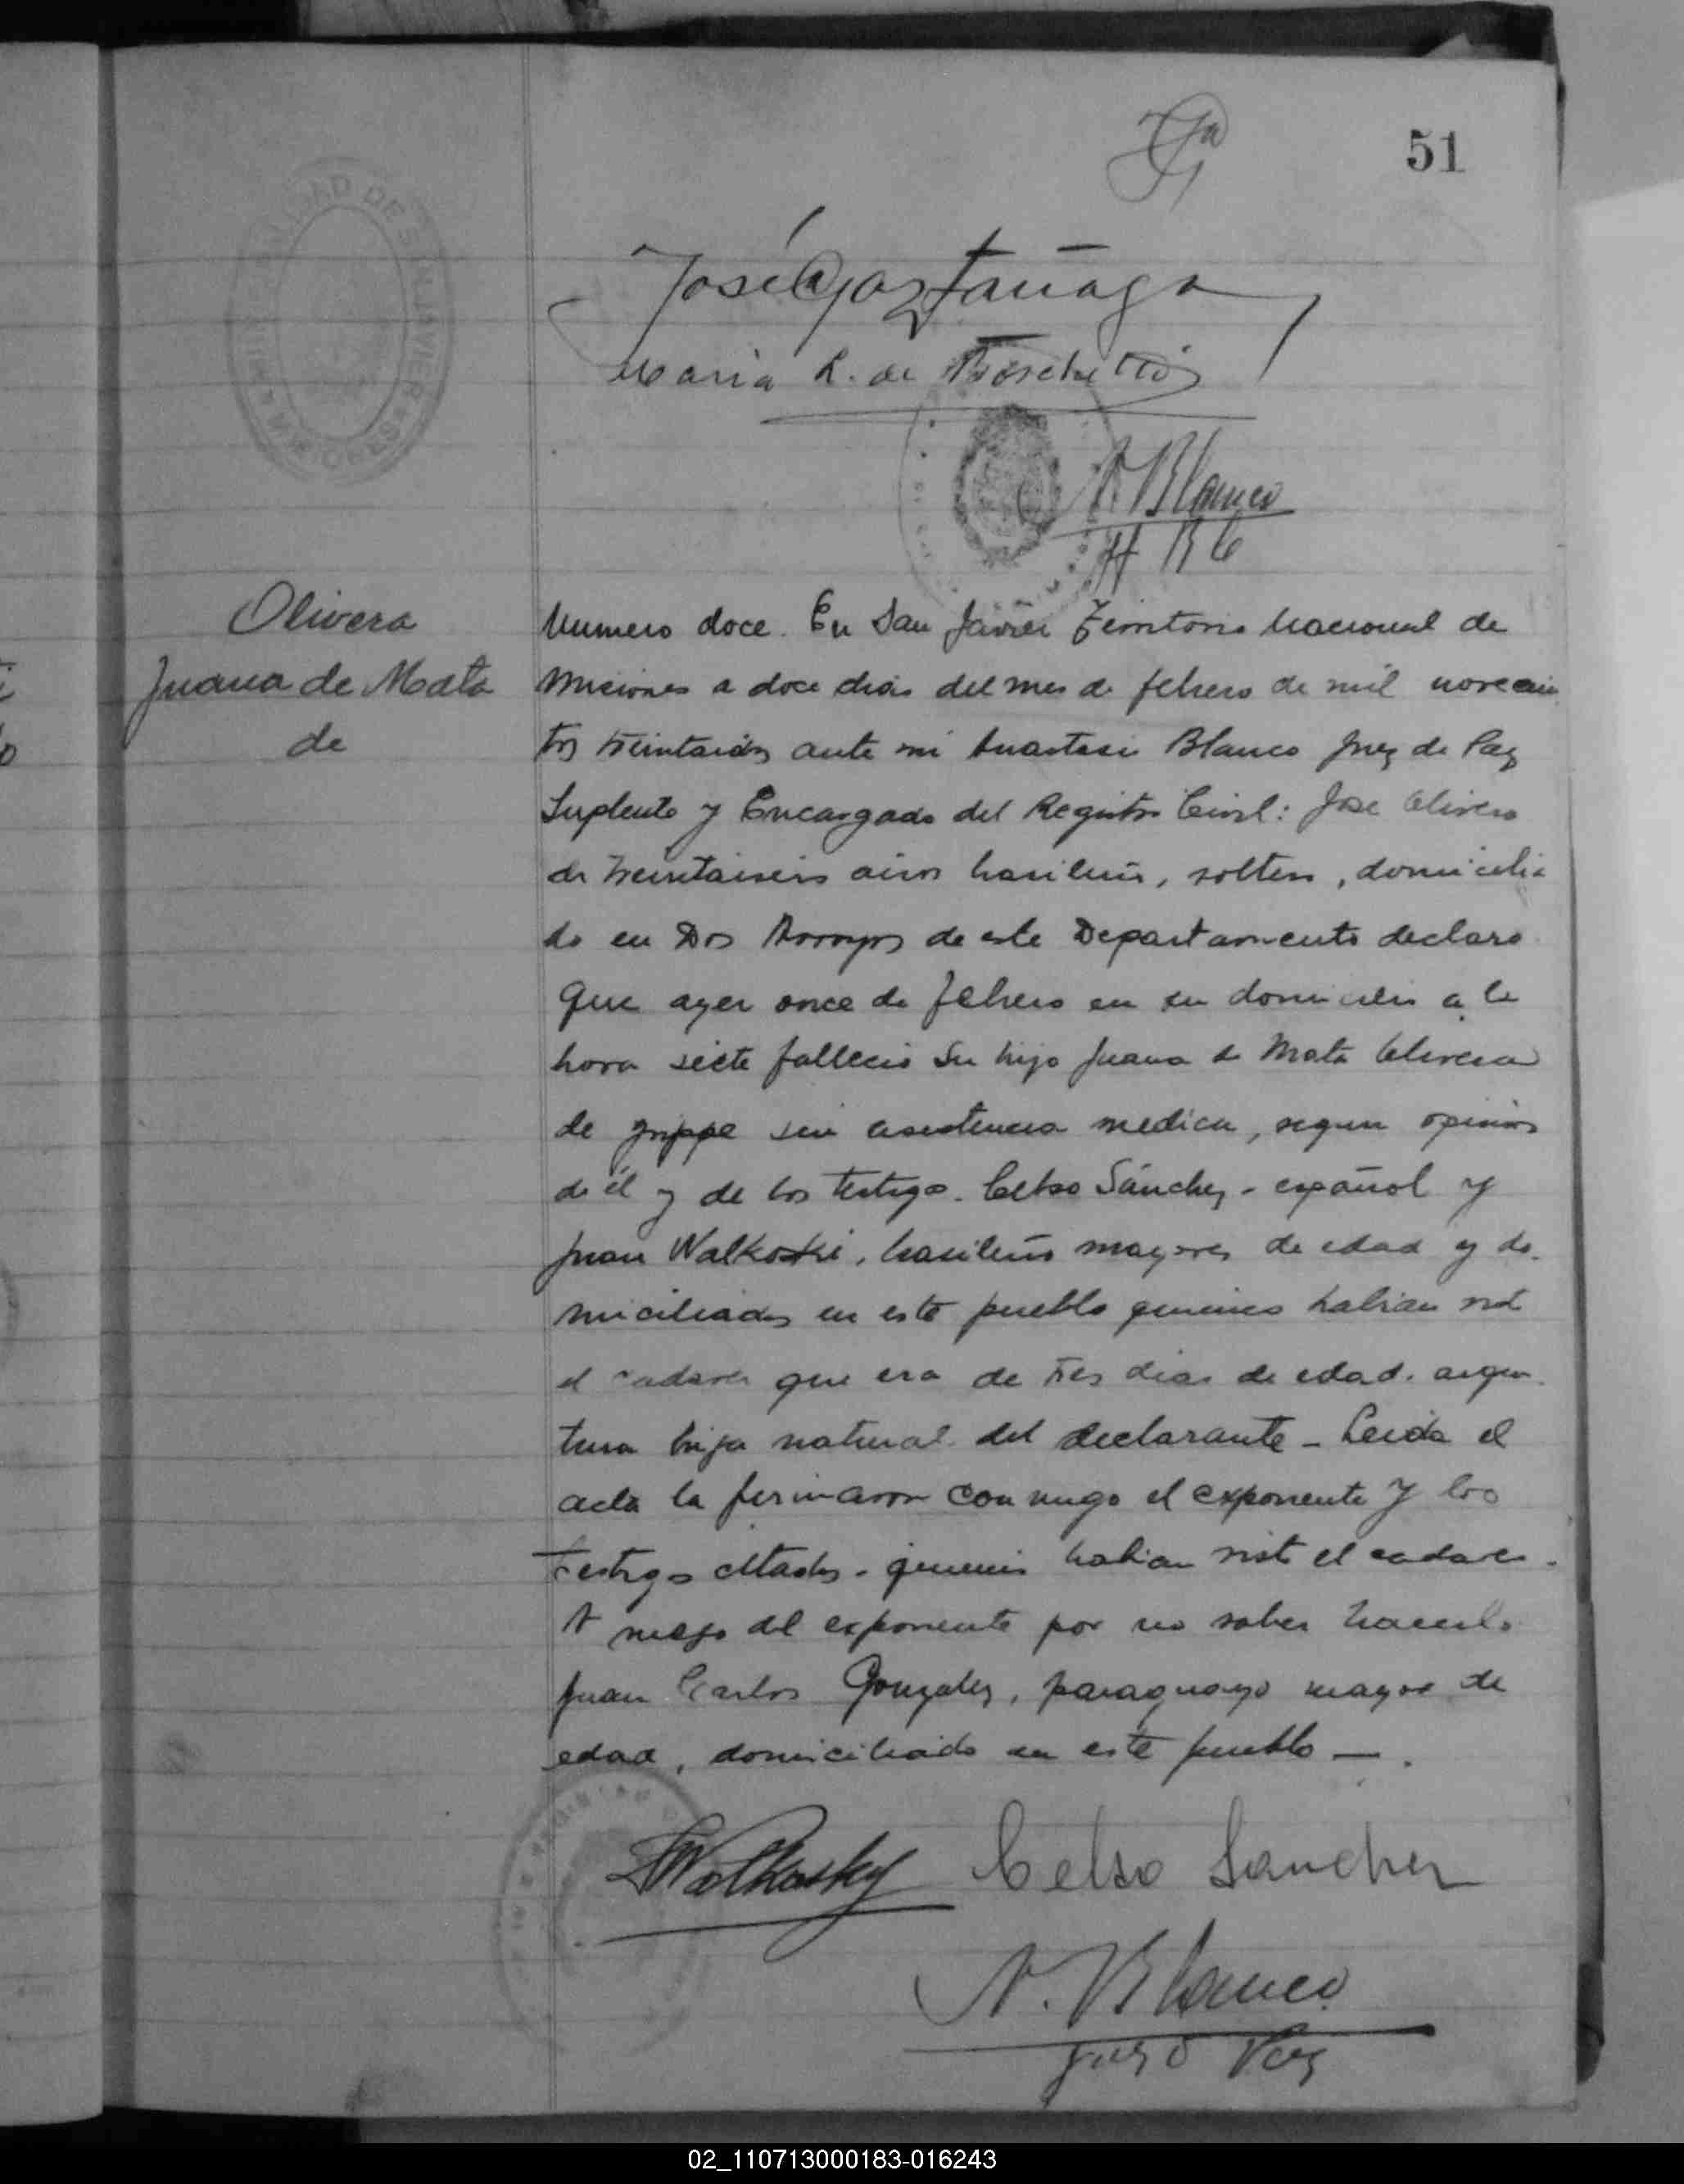 51
José Gaztañaga
Maria R. de Boschetto
A. Blanco
Olivera
Juana de Mata
de
Numero doce. En San Javier Territorio Nacional de
Misiones a doce dias del mes de febrero de mil novecien
tos treintaidos ante mi Anastasio Blanco Juez de Paz
Suplente y Encargado del Registro Civil: Jose Olivera
de treintaiseis años brasileño, soltero, domicilia
do en Dos Arroyos de este Departamento declaro
Que ayer once de febrero en su domicilio a la
hora siete fallecio Su hija Juana de Mata Olivera
de grippe sin asistencia medica, segun opinion
de él y de los testigos. Celso Sánchez - español y
Juan Walkoski, brasileño mayores de edad y do.
miciliados en este pueblo quienes habian visto
el cadaver que era de tres dias de edad. argen.
tina hija natural del declarante - Leida el
acta la firmaron conmigo el exponente y los
testigos citados - quienes habian visto el cadaver.
A ruego del exponente por no saber hacerlo
Juan Carlos Gonzalez, paraguayo mayor de
edad, domiciliado en este pueblo —.
JWalkosky Celso Sanchez
A. Blanco
Juez d Paz
02_110713000183-016243